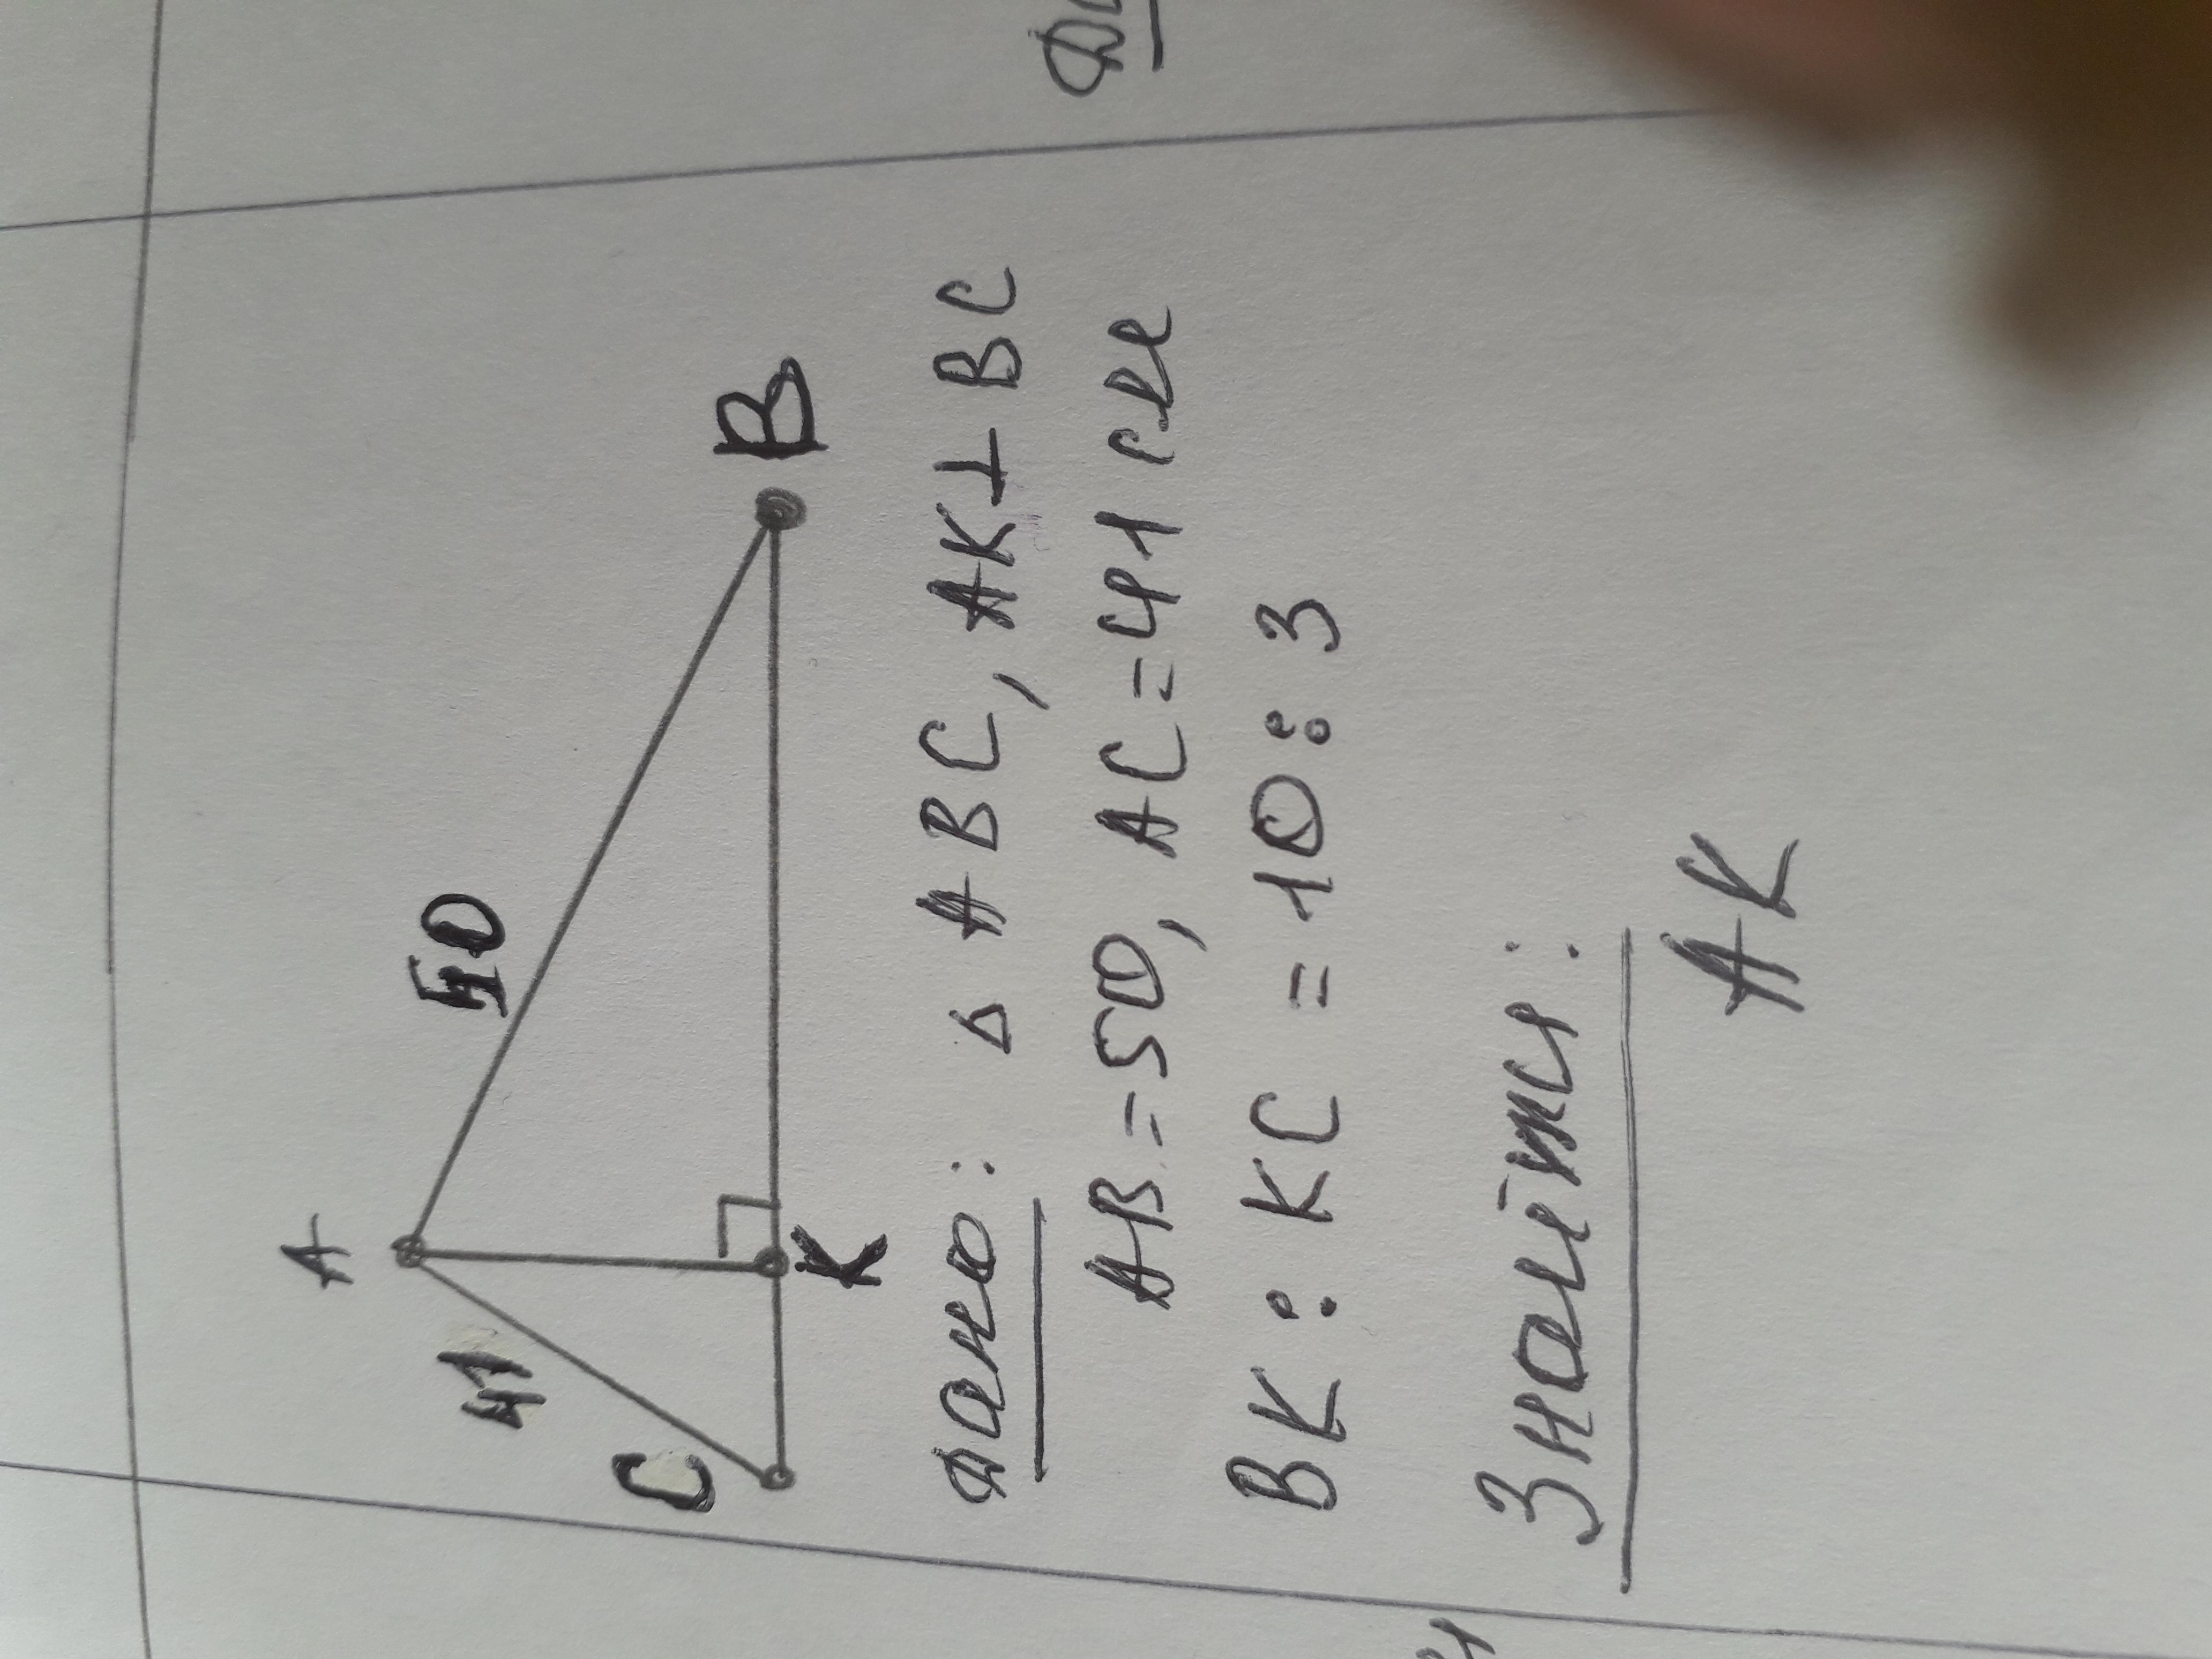 A
41
50
C
K
B
Дано: △ ABC, AK⊥BC
AB=50, AC=41 см
BK : KC = 10 : 3
Знайти:
AK